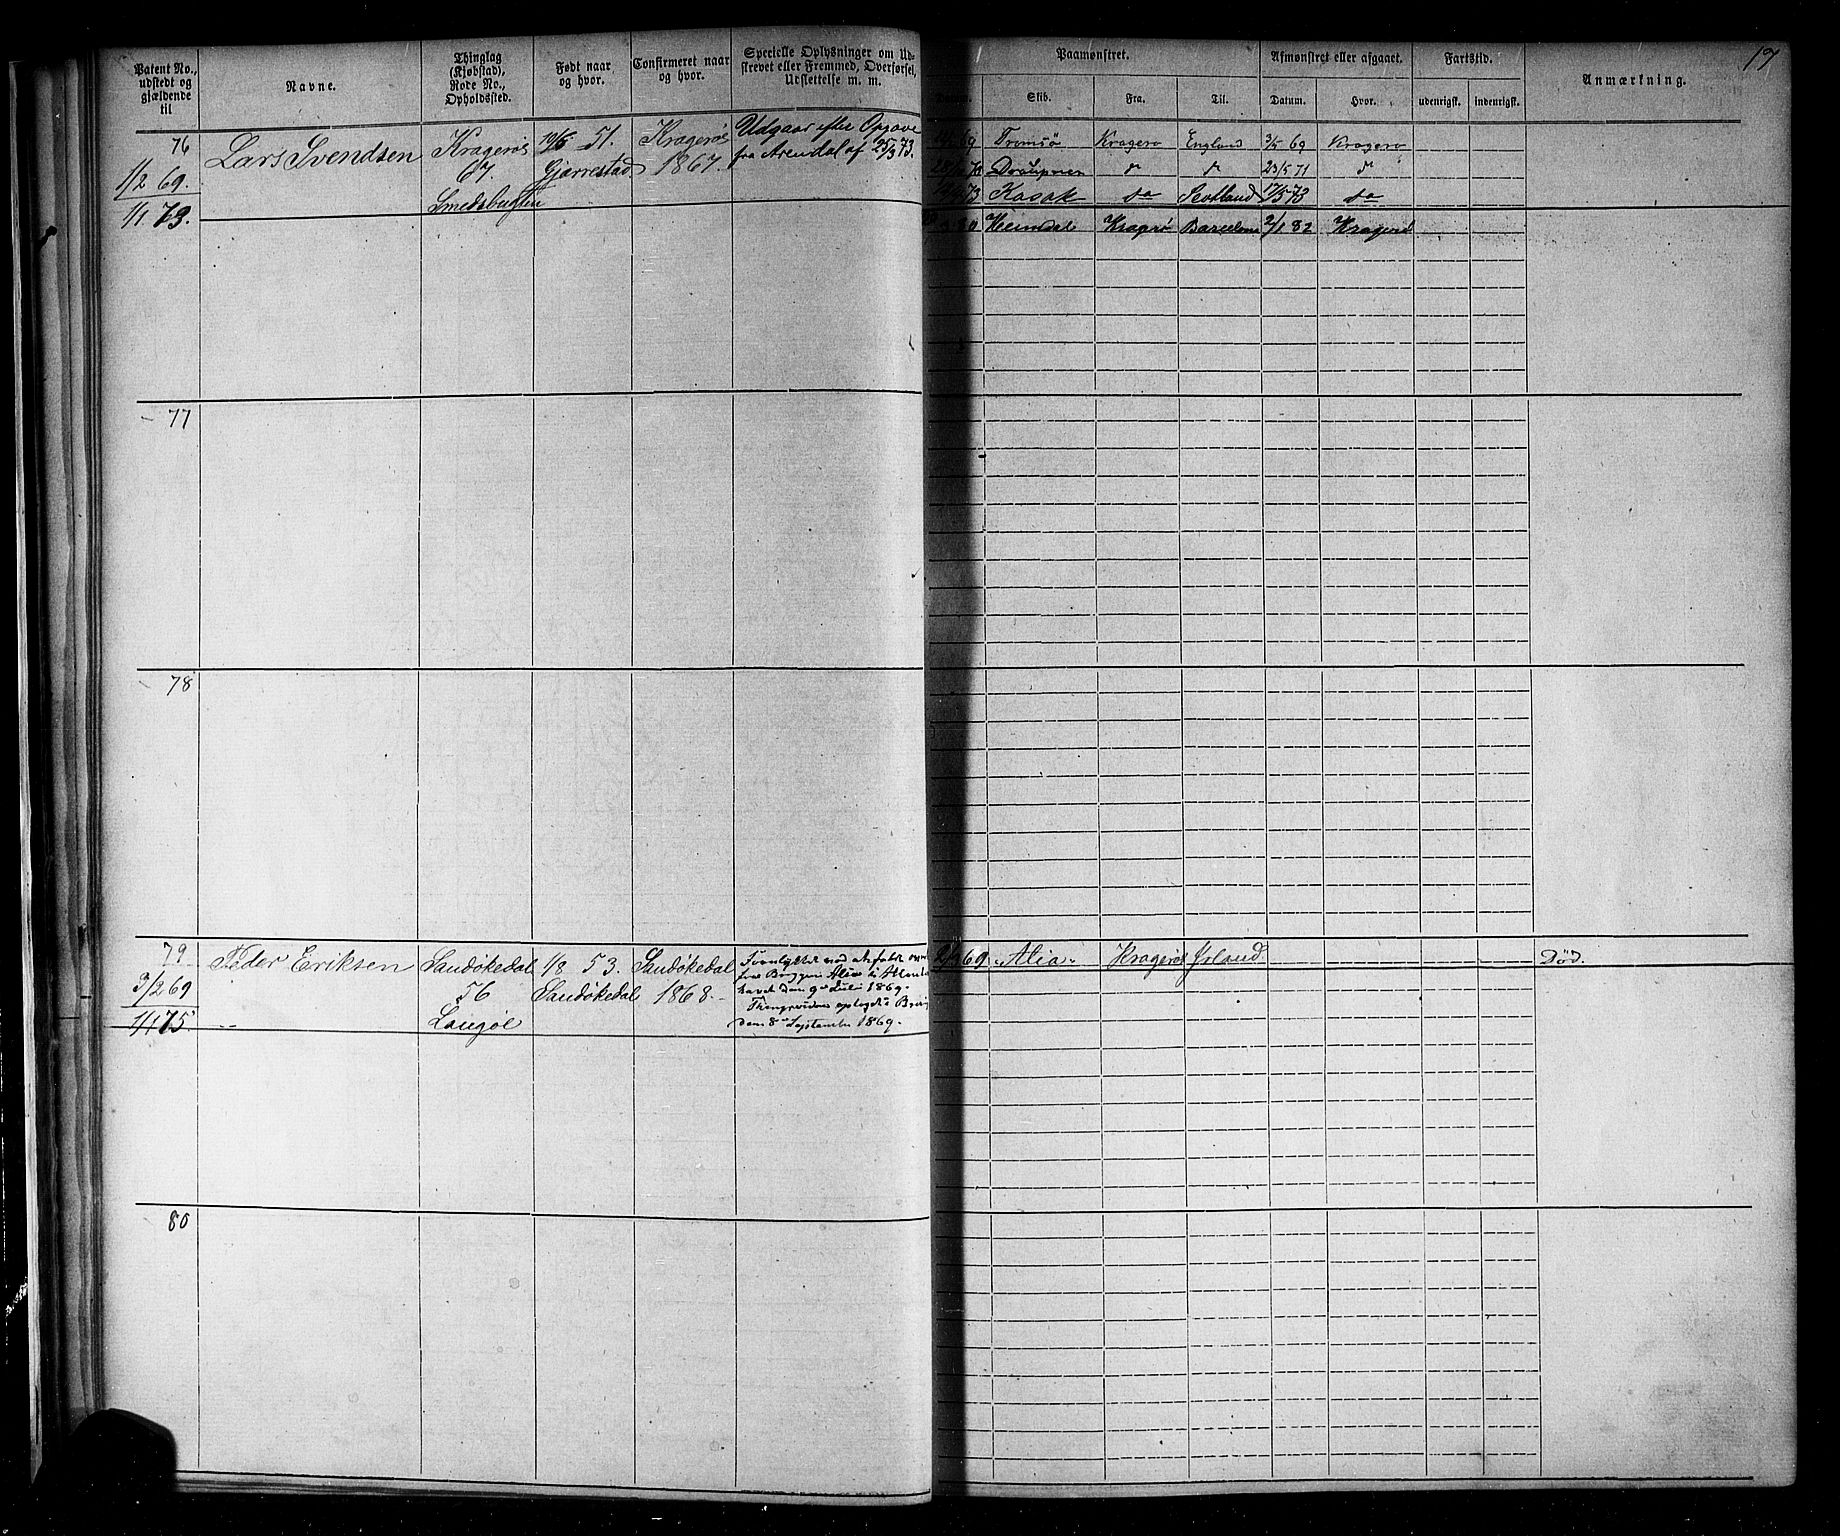 17
Patent No., udstedt og gjældende til
Navne.
Thinglag (Kjøbstad), Rode No., Opholdssted.
Født naar og hvor.
Confirmeret naar og hvor.
Specielle Oplysninger om Udskrevet eller Fremmed, Overførsel, Udslettelse m. m.
Paamønstret.
Skib. Fra. Til.
Afmønstret eller afgaaet.
Datum. Hvor.
Fartstid.
udenrigst. indenrigst.
Anmærkning.
76
1/2 69.
1/1 73.
Lars Svendsen
Kragerö
67.
Smedsbugten
10/6 51.
Gjerrestad
Kragerö
1867.
Udgaar efter Opgave
fra Arendal af 25/3 73.
69 Tromsö Kragerø England 3/5 69 Kragerø
Draupner 23/5 71
73 Kosak do Scotland 17/5 73 do
80 Heimdal Kragrø Barcelona 2/1 82 Kragerø
77
78
79
3/2 69
1/1 75
Peder Eriksen
Sandökedal
56
Langöe
1/8 53.
Sandökedal
Sandökedal
1868.
Forulykket ved at falde over
fra Briggen Alia i Atlanter
havet den 9de Juli 1869.
den 8de September 1869.
69 "Alia" Kragerö Irland
Död.
80